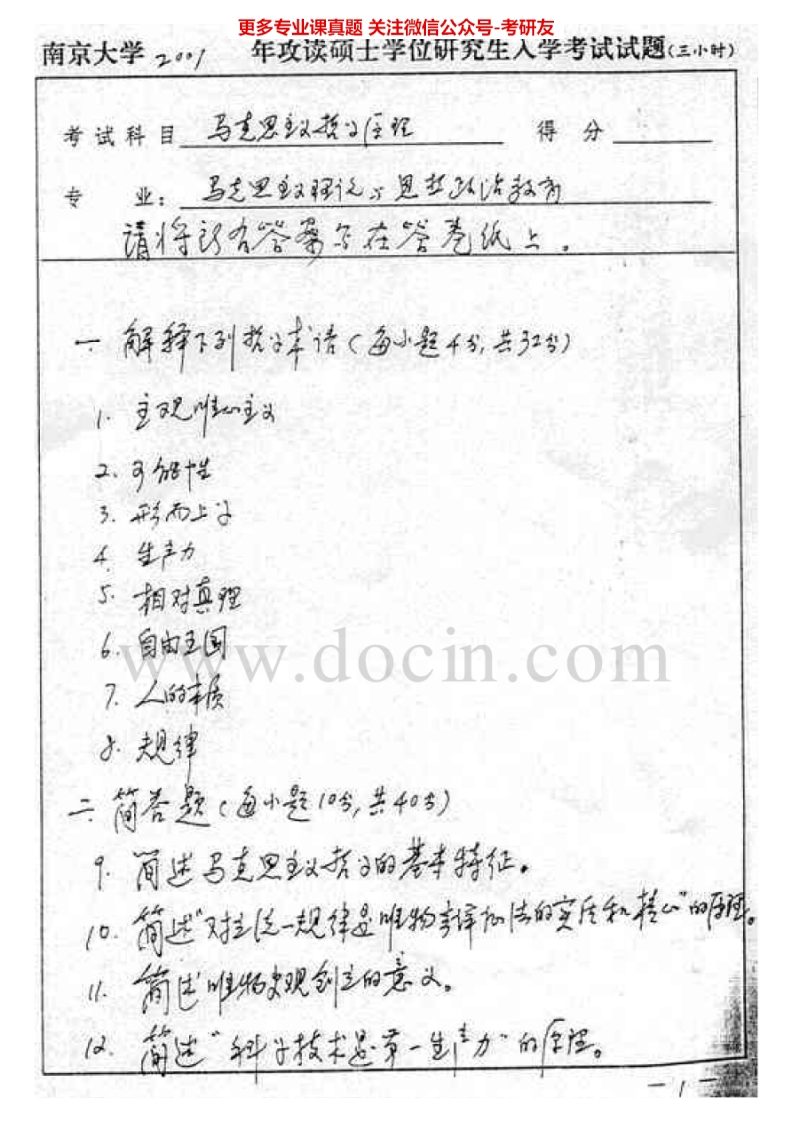 更多专业课真题 关注微信公众号-考研友
南京大学 2001 年攻读硕士学位研究生入学考试试题(三小时)
考试科目 马克思主义哲学原理 得分
专 业: 马克思主义理论与思想政治教育
请将所有答案写在答卷纸上。
一 解释下列哲学术语(每小题4分,共32分)
1. 主观唯心主义
2. 可能性
3. 形而上学
4. 生产力
5. 相对真理
6. 自由王国
www.docin.com
7. 人的本质
8. 规律
二 简答题(每小题10分,共40分)
9. 简述马克思主义哲学的基本特征。
10. 简述“对立统一规律是唯物辩证法的实质和核心”的原理。
11. 简述唯物史观创立的意义。
12. 简述“科学技术是第一生产力”的原理。
-1-